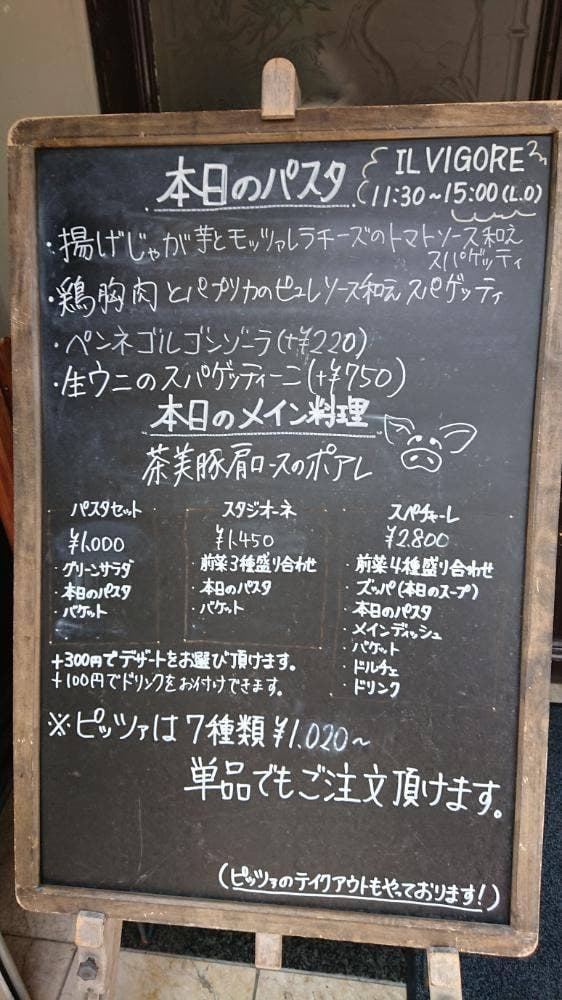 本日のパスタ
ILVIGORE
11:30~15:00(L.O)
・揚げじゃが芋とモッツァレラチーズのトマトソース和え
スパゲッティ
・鶏胸肉とパプリカのピュレソース和えスパゲッティ
・ペンネゴルゴンゾーラ(+¥220)
・生ウニのスパゲッティーニ(+¥750)
本日のメイン料理
茶美豚肩ロースのポアレ
パスタセット
¥1.000
・グリーンサラダ
・本日のパスタ
・バケット
スタジオーネ
¥1.450
・前菜3種盛り合わせ
・本日のパスタ
・バケット
スペチャーレ
¥2.800
・前菜4種盛り合わせ
・ズッパ(本日のスープ)
・本日のパスタ
・メインディッシュ
・バケット
・ドルチェ
・ドリンク
+300円でデザートをお選び頂けます。
+100円でドリンクをお付けできます。
※ピッツァは7種類¥1.020~
単品でもご注文頂けます。
(ピッツァのテイクアウトもやっております!)